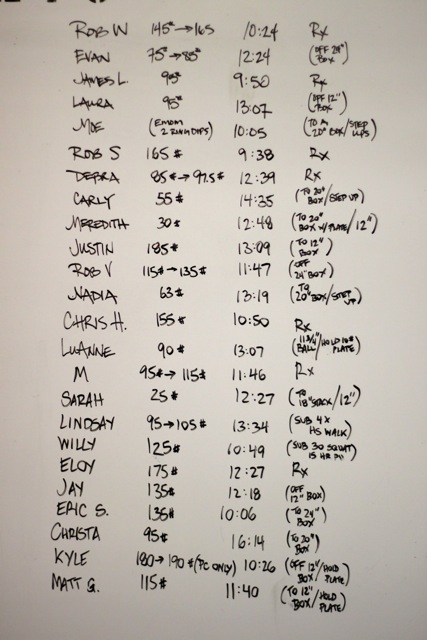 ROB W 145# → 165 10:24 Rx
EVAN 75# → 85# 12:24 (OFF 24" BOX)
JAMES L. 95# 9:50 Rx
LAURA 95# 13:07 (OFF 12" BOX)
MOE (EMOM 2 RING DIPS) 10:05 (TO A 20" BOX/STEP UPS)
ROB S 165# 9:38 Rx
DEBRA 85# → 97.5# 12:39 Rx
CARLY 55# 14:35 (TO 20" BOX/STEP UP)
MEREDITH 30# 12:48 (TO 20" BOX W/PLATE/12")
JUSTIN 185# 13:09 (TO 12" BOX)
ROB V 115# → 135# 11:47 (OFF 24" BOX)
NADIA 63# 13:19 (TO 20" BOX/STEP UP)
CHRIS H. 155# 10:50 Rx
LUANNE 90# 13:07 (11 3/4" BALL/HOLD 10# PLATE)
M 95# → 115# 11:46 Rx
SARAH 25# 12:27 (TO 18" STACK/12")
LINDSAY 95 → 105# 13:34 (SUB 4X HS WALK)
WILLY 125# 10:49 (SUB 30 SQUAT 15 HR)
ELOY 175# 12:27 Rx
JAY 135# 12:18 (OFF 12" BOX)
ERIC S. 135# 10:06 (TO 24" BOX)
CHRISTA 95# 16:14 (TO 20" BOX)
KYLE 180 → 190# (PC ONLY) 10:26 (OFF 12" BOX/HOLD PLATE)
MATT G. 115# 11:40 (TO 12" BOX/HOLD PLATE)